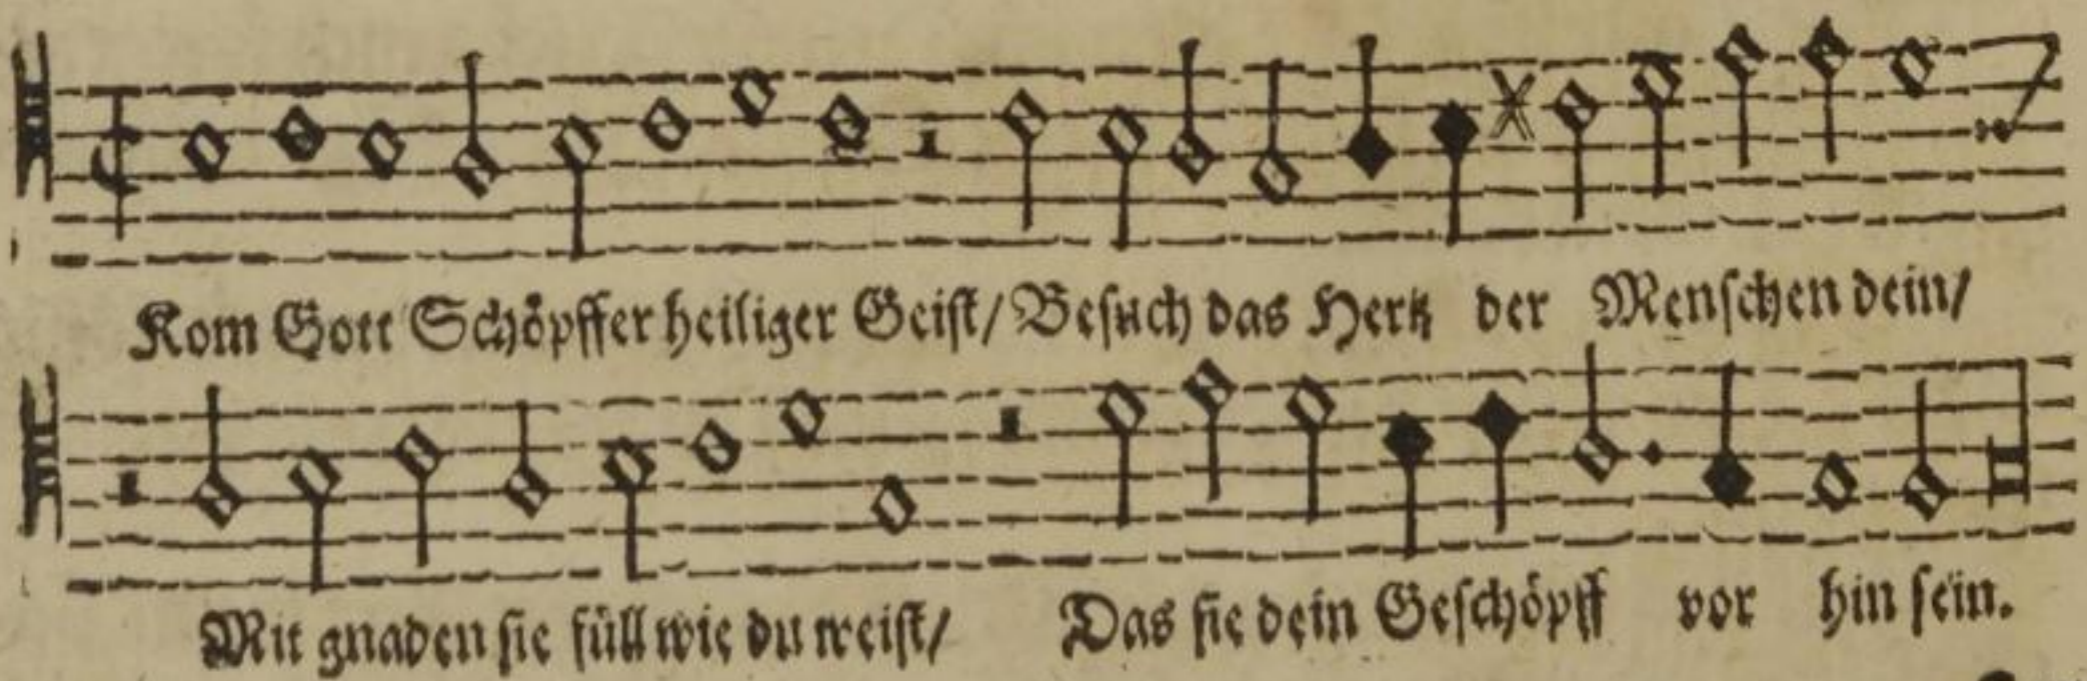 Kom Gott Schöpffer heiliger Geist/ Besuch das Hertz der Menschen dein/
Mit gnaden sie füll wie du weist/ Das sie dein Geschöpff vor hin sein.